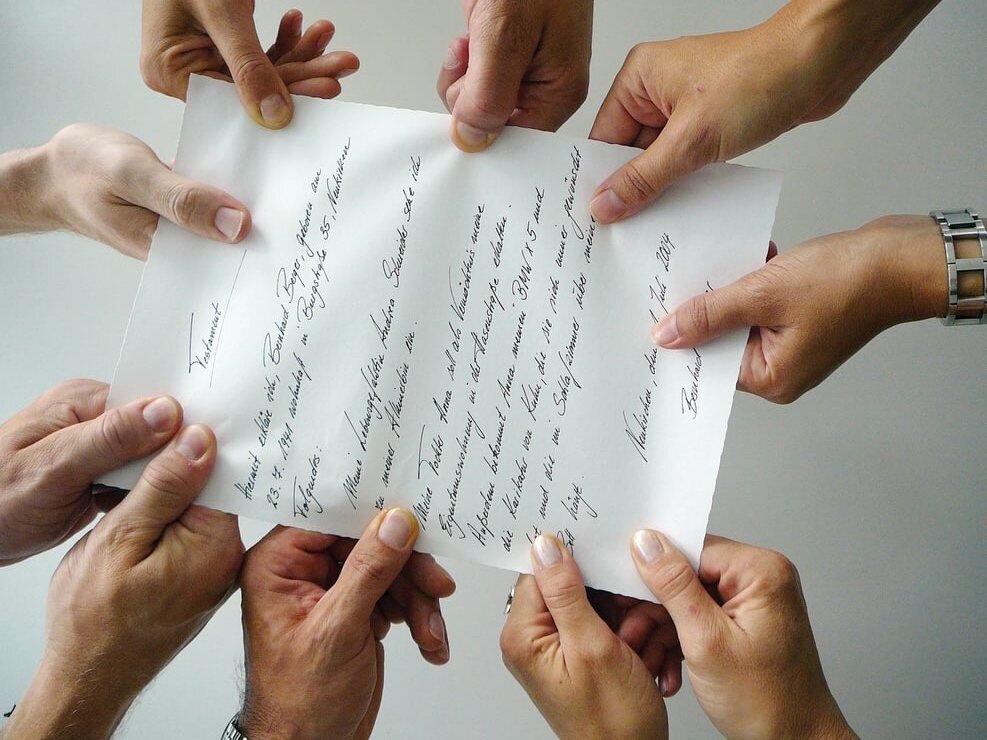 Testament
Hiermit erkläre ich, Bernhard Berger, geboren am
23.7.1941 wohnhaft in Burgstraße 35, Neukirchen
Folgendes:
Meine Lebensgefährtin Andrea Schneider setze ich
zu meiner Alleinerbin ein.
Meine Tochter Anna soll als Vermächtnis meine
Eigentumswohnung in der Hasenstraße erhalten.
Außerdem bekommt Anna meinen BMW X5 und
die Karikatur von Kuhn, die sie sich immer gewünscht
hat und die im Schlafzimmer über meinem
Bett hängt.
Neukirchen, den Juli 2014
Bernhard